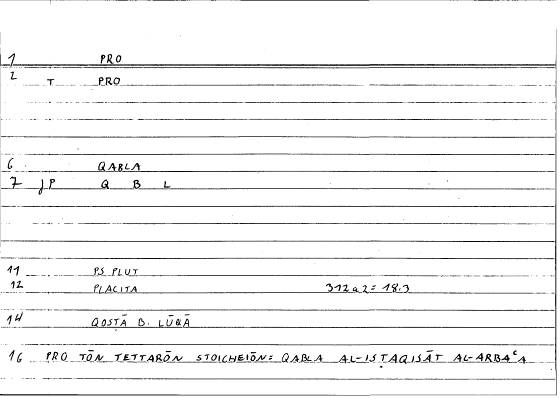 1 PRO
2 T PRO
6 QABLA
7 JP Q B L
11 PS. PLUT
12 PLACITA 312a2 = 18.3
14 QOSṬĀ B. LŪQĀ
16 PRO TŌN TETTARŌN STOICHEIŌN: QABLA AL-ISṬAQISĀT AL-ARBAᶜA